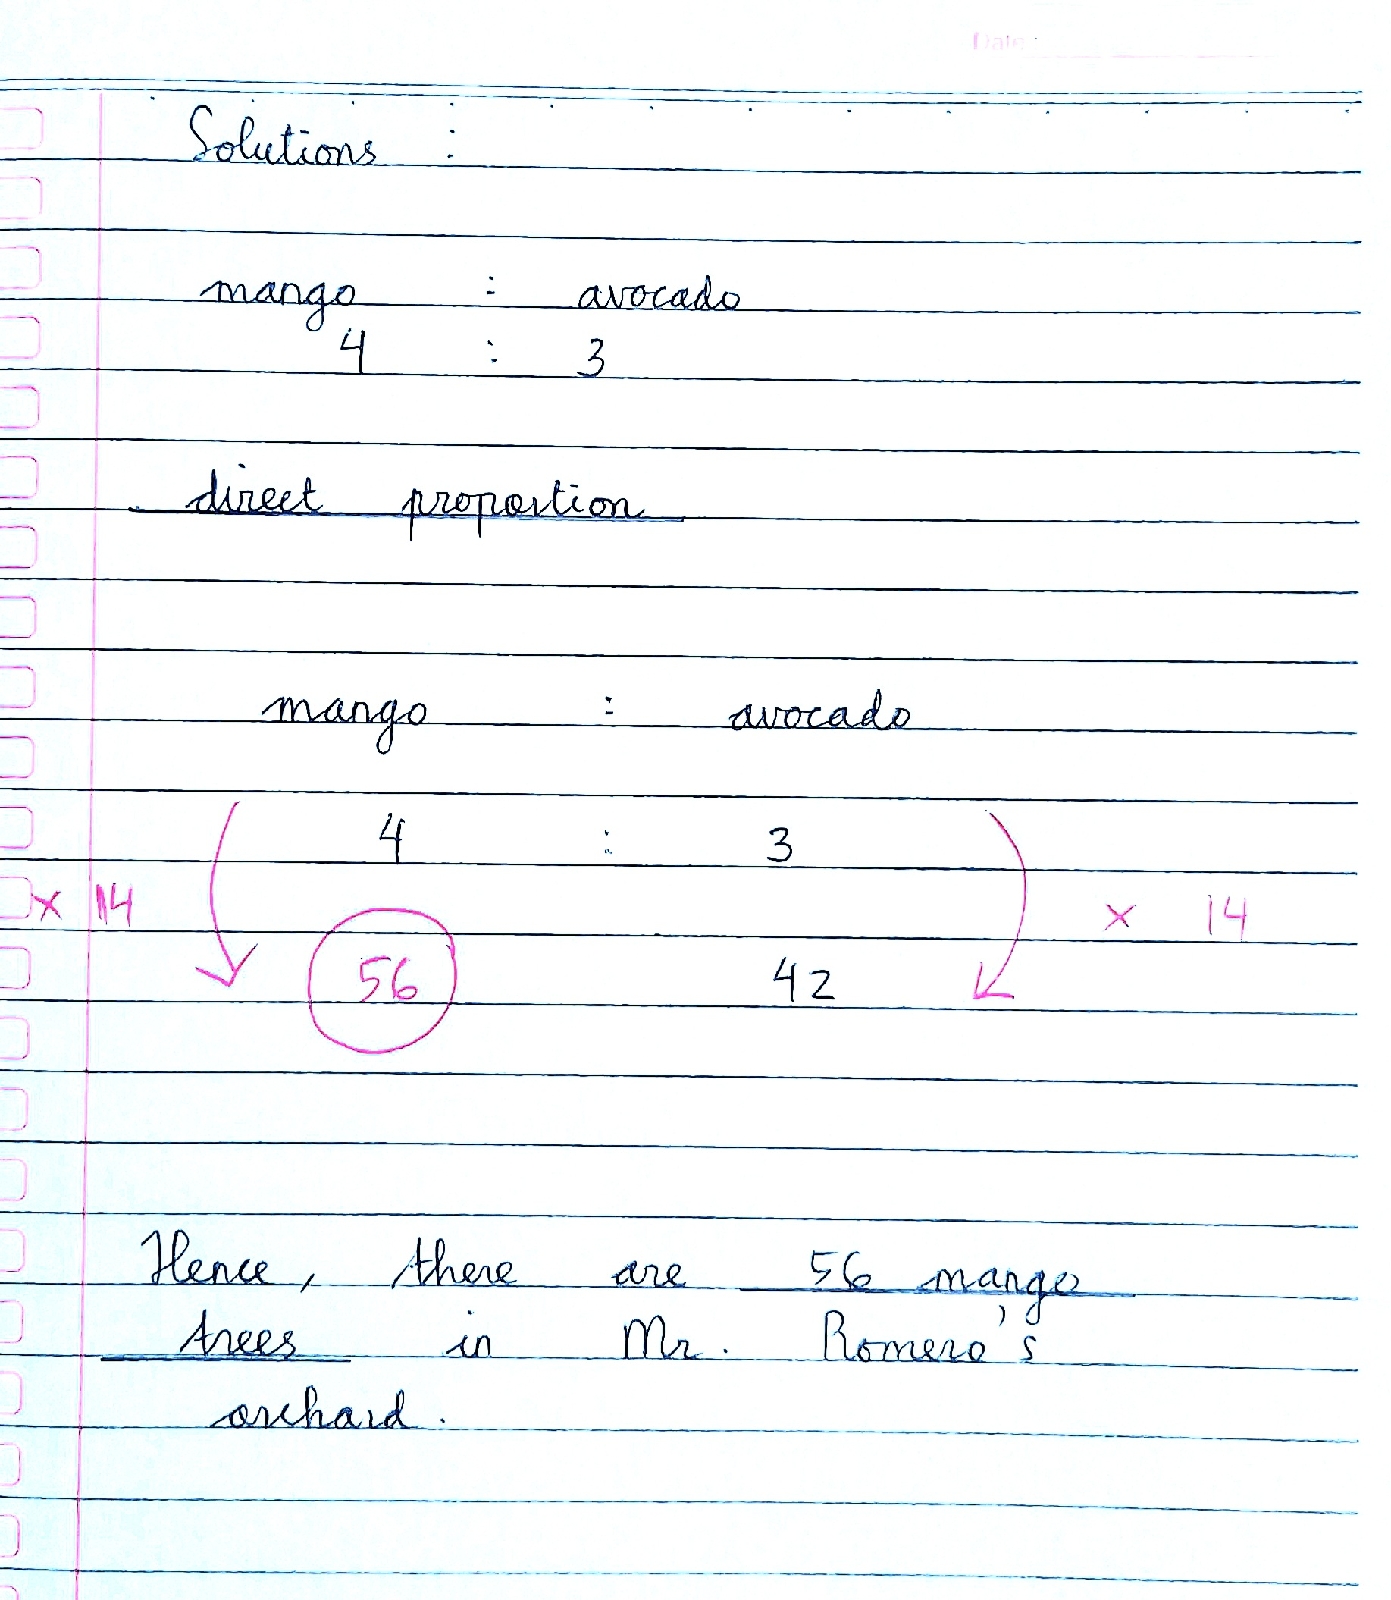 Date
Solutions :
mango : avocado
4 : 3
direct proportion
mango : avocado
4 : 3
x 14 x 14
56 42
Hence, there are 56 mango
trees in Mr. Romero's
orchard.